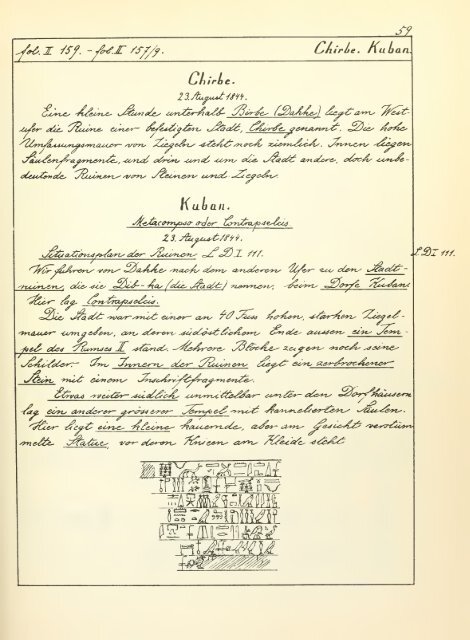 59
fol. II 159. - fol. II 157/9.
Chirbe. Kuban.
Chirbe.
23. August 1844.
Eine kleine Stunde unterhalb Birbe (Dakke) liegt am West-
ufer die Ruine einer befestigten Stadt, Chirbe genannt. Die hohe
Umfassungsmauer von Ziegeln steht noch ziemlich. Innen liegen
Säulenfragmente, und drin und um die Stadt andere, doch unbe-
deutende Ruinen von Steinen und Ziegeln
Kuban.
Metacompso oder Contrapselcis
23. August 1844.
Situationsplan der Ruinen L. D. I. 111.
L. D. I. 111.
Wir fuhren von Dakke nach dem anderen Ufer zu den Stadt-
ruinen, die sie Dib-ka (die Stadt) nennen, beim Dorfe Kuban.
Hier lag Contrapselcis.
Die Stadt war mit einer an 40 Fuss hohen, starken Ziegel-
mauer umgeben, an deren südöstlichem Ende aussen ein Tem-
pel des Ramses II stand. Mehrere Blöcke zeigen noch seine
Schilder. Im Innern der Ruinen liegt ein zerbrochener
Stein mit einem Inschriftfragmente.
Etwas weiter südlich unmittelbar unter den Dorfhäusern
lag ein anderer grösserer Tempel mit kannelierten Säulen.
Hier liegt eine kleine kauernde, aber am Gesicht verstüm
melte Statue, vor deren Knieen am Kleide steht